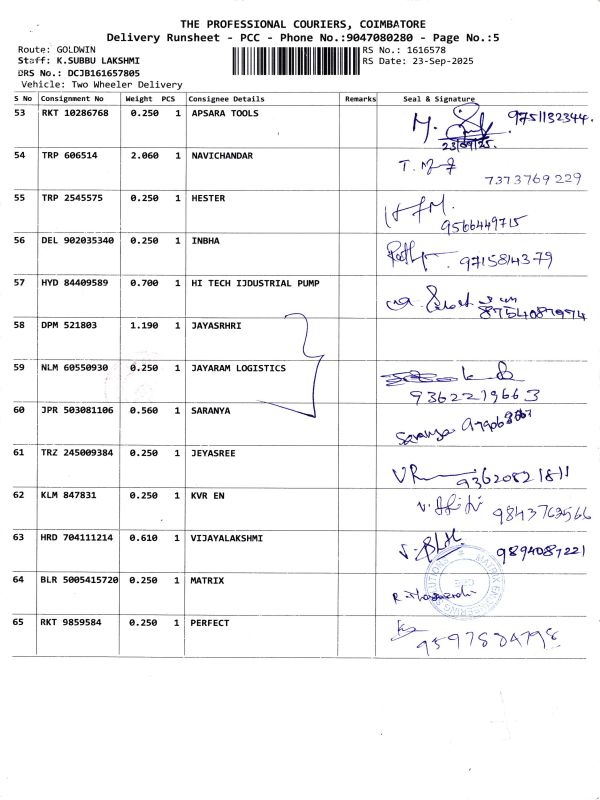 THE PROFESSIONAL COURIERS, COIMBATORE
Delivery Runsheet - PCC - Phone No.:9047080280 - Page No.:5
Route: GOLDWIN
RS No.: 1616578
Staff: K.SUBBU LAKSHMI
RS Date: 23-Sep-2025
DRS No.: DCJB161657805
Vehicle: Two Wheeler Delivery
S No Consignment No Weight PCS Consignee Details Remarks Seal & Signature
53 RKT 10286768 0.250 1 APSARA TOOLS 9751132344
23/09/25
54 TRP 606514 2.060 1 NAVICHANDAR
7373769229
55 TRP 2545575 0.250 1 HESTER
9566449715
56 DEL 902035340 0.250 1 INBHA 9715814379
57 HYD 84409589 0.700 1 HI TECH IJDUSTRIAL PUMP
8754087974
58 DPM 521803 1.190 1 JAYASRHRI
59 NLM 60550930 0.250 1 JAYARAM LOGISTICS
9362219663
60 JPR 503081106 0.560 1 SARANYA Saranya
61 TRZ 245009384 0.250 1 JEYASREE
9362082181
62 KLM 847831 0.250 1 KVR EN
9843763566
63 HRD 704111214 0.610 1 VIJAYALAKSHMI 9894087221
64 BLR 5005415720 0.250 1 MATRIX
MATRIX ENGINEERING SOLUTIONS
65 RKT 9859584 0.250 1 PERFECT
9597884798